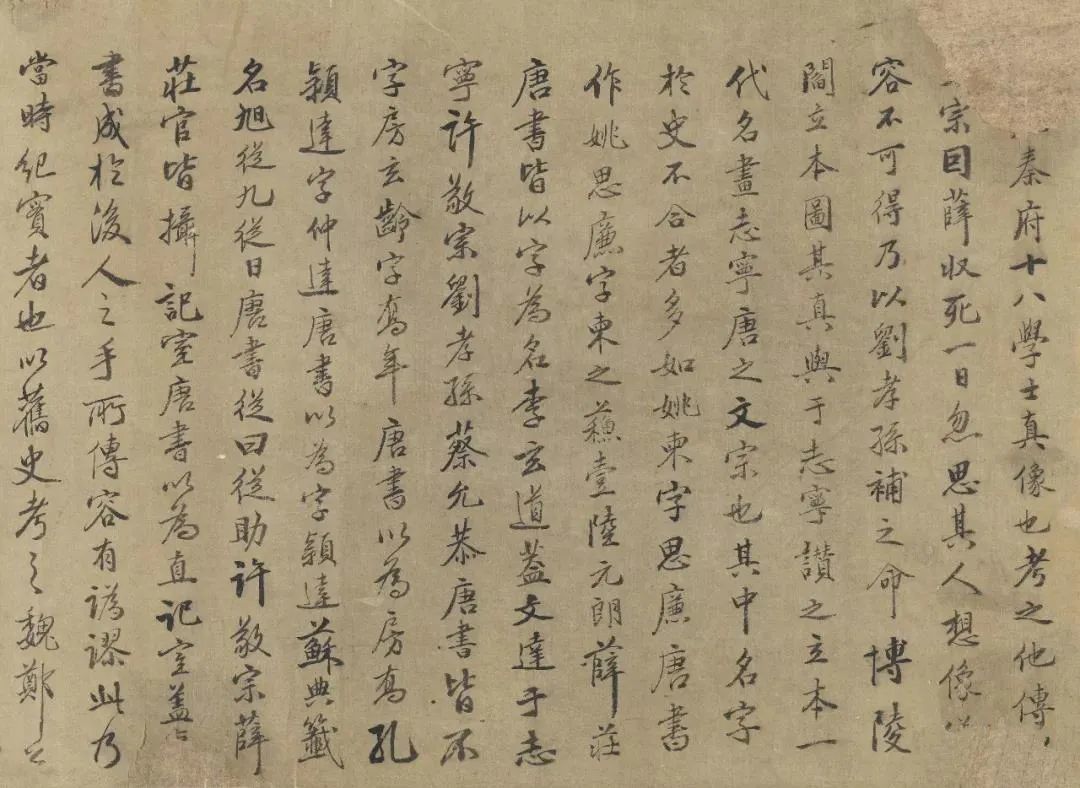 秦府十八學士真像也考之他傳
宗因薛收死一日忽思其人想像
容不可得乃以劉孝孫補之命博陵
閻立本圖其真與于志寧讃之立本一
代名畫志寧唐之文宗也其中名字
於史不合者多如姚柬字思廉唐書
作姚思廉字柬之蘓壹陸元朗薛莊
唐書皆以字為名李玄道蓋文達于志
寧許敬宗劉孝孫蔡允恭唐書皆不
字房玄齡字喬年唐書以為房喬孔
穎達字仲達唐書以為字穎達蘇典籖
名旭從九從日唐書從曰從助許敬宗薛
莊官皆攝記室唐書以為直記室蓋
書成於後人之手所傳容有譌謬此乃
當時紀實者也以舊史考之魏鄭公